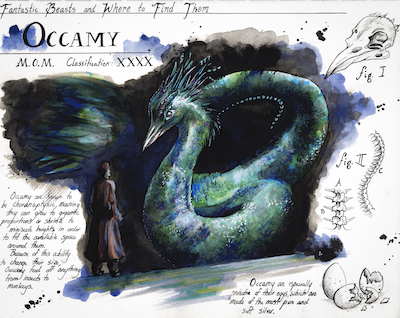 Fantastic Beasts and Where to Find Them
OCCAMY
M.O.M. Classification: XXXX
fig. I
fig. II
Occamy are known to
be Choranaptyxic, meaning
they can grow to gigantic
proportions or shrink to
miniscule heights in order
to fit the available space
around them.
Because of this ability
to change their size,
Occamy feed off anything
from insects to
monkeys.
Occamy are especially
protective of their eggs, which are
made of the most pure and
soft silver.